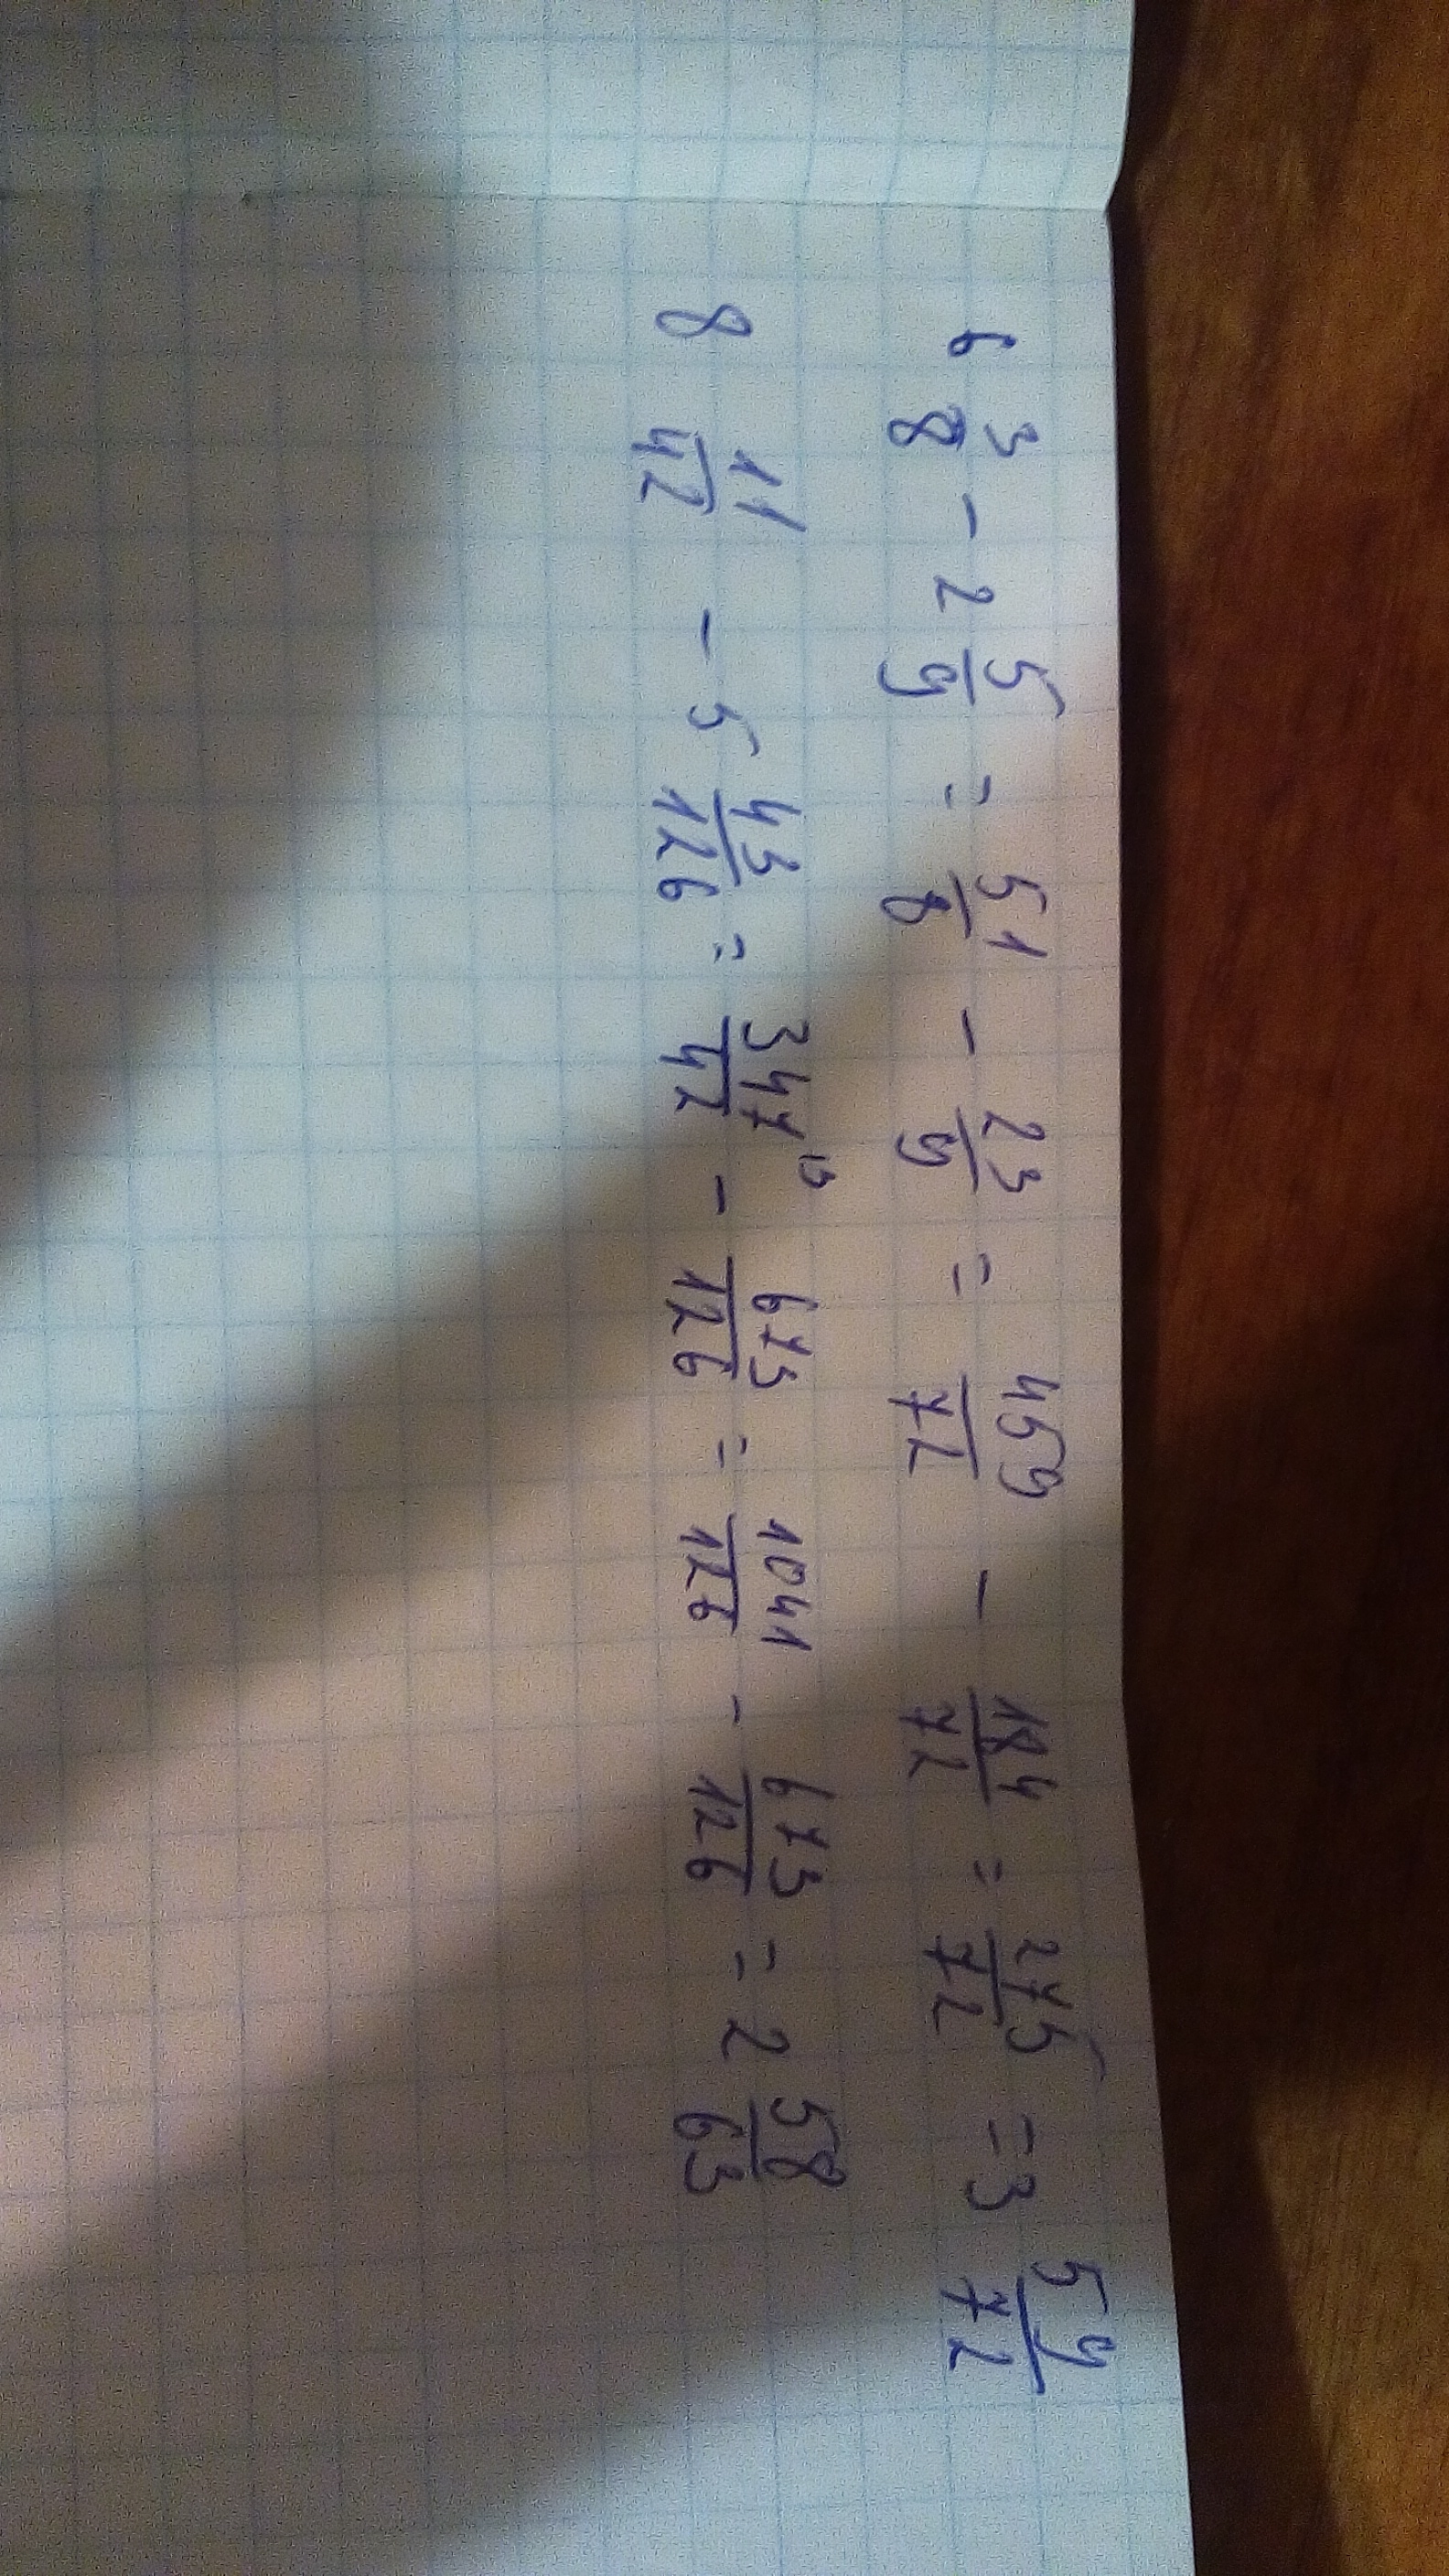 6 3/8 - 2 5/9 = 51/8 - 23/9 = 459/72 - 184/72 = 275/72 = 3 59/72
8 11/42 - 5 43/126 = 347/42 ^13 - 673/126 = 1041/126 - 673/126 = 2 58/63